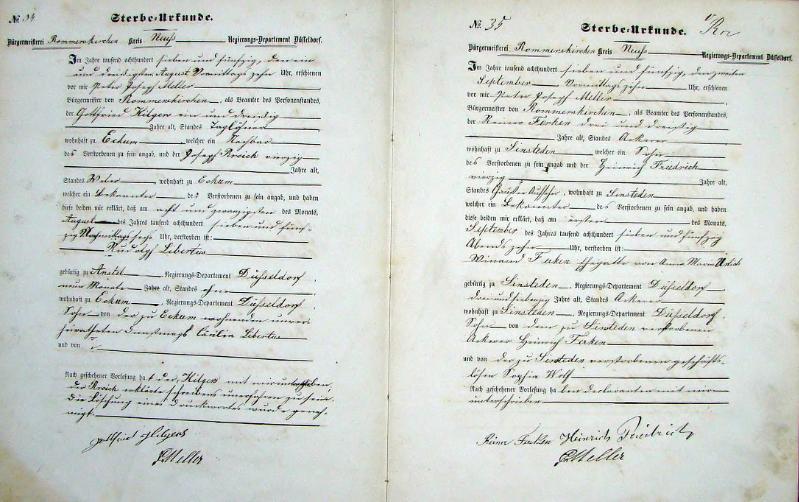 № 34
Sterbe-Urkunde.
Bürgermeisterei Rommerskirchen Kreis Neuß Regierungs-Departement Düsseldorf.
Im Jahre tausend achthundert sieben und fünfzig, den ein
und dreißigsten August Vormittags zehn Uhr, erschienen
vor mir Peter Joseph Meller
Bürgermeister von Rommerskirchen, als Beamter des Personenstandes,
der Gottfried Hilgers ein und dreißig
Jahre alt, Standes Taglöhner
wohnhaft zu Eckum, welcher ein Nachbar
des Verstorbenen zu sein angab, und der Joseph Broich vierzig
Jahre alt,
Standes Weber, wohnhaft zu Eckum
welcher ein Bekannter des Verstorbenen zu sein angab, und haben
diese beiden mir erklärt, daß am acht und zwanzigsten des Monats
August des Jahres tausend achthundert sieben und fünf-
zig Nachmittags sechs Uhr, verstorben ist:
Rudolf Libertus
gebürtig zu Anstel, Regierungs-Departement Düsseldorf,
neun Monate Jahre alt, Standes ohne
wohnhaft zu Eckum, Regierungs-Departement Düsseldorf,
Sohn von der zu Eckum wohnenden unver-
heiratheten Dienstmagd Cäcilia Libertus
und von
Nach geschehener Vorlesung hat der Hilgers mit mir unterschrieben,
der Broich erklärte schreibens unerfahren zu sein
Die Löschung eines Druckwortes wurde geneh-
migt.
Gottfried Hilgers
PMeller
№ 35
Sterbe-Urkunde.
Bürgermeisterei Rommerskirchen Kreis Neuß Regierungs-Departement Düsseldorf.
Im Jahre tausend achthundert sieben und fünfzig, den zweiten
September Vormittags zehn Uhr, erschienen
vor mir Peter Joseph Meller
Bürgermeister von Rommerskirchen, als Beamter des Personenstandes,
der Reiner Ferken drei und dreißig
Jahre alt, Standes Ackerer
wohnhaft zu Sinsteden, welcher ein Sohn
des Verstorbenen zu sein angab und der Heinrich Friedrich
vierzig Jahre alt,
Standes, wohnhaft zu Sinsteden
welcher ein Bekannter des Verstorbenen zu sein angab, und haben
diese beiden mir erklärt, daß am ersten des Monats
September des Jahres tausend achthundert sieben und fünfzig
Abends zehn Uhr, verstorben ist:
Winand Ferken Ehegatte von Anna Maria
gebürtig zu Sinsteden, Regierungs-Departement Düsseldorf
drei und siebenzig Jahre alt, Standes Ackerer
wohnhaft zu Sinsteden, Regierungs-Departement Düsseldorf
Sohn von dem zu Sinsteden verstorbenen
Ackerer Heinrich Ferken
und von der zu Sinsteden verstorbenen geschäfts-
losen Sophia Wolf
Nach geschehener Vorlesung haben Declaranten mit mir
unterschrieben
Reiner Ferken Heinrich Friedrich
PMeller